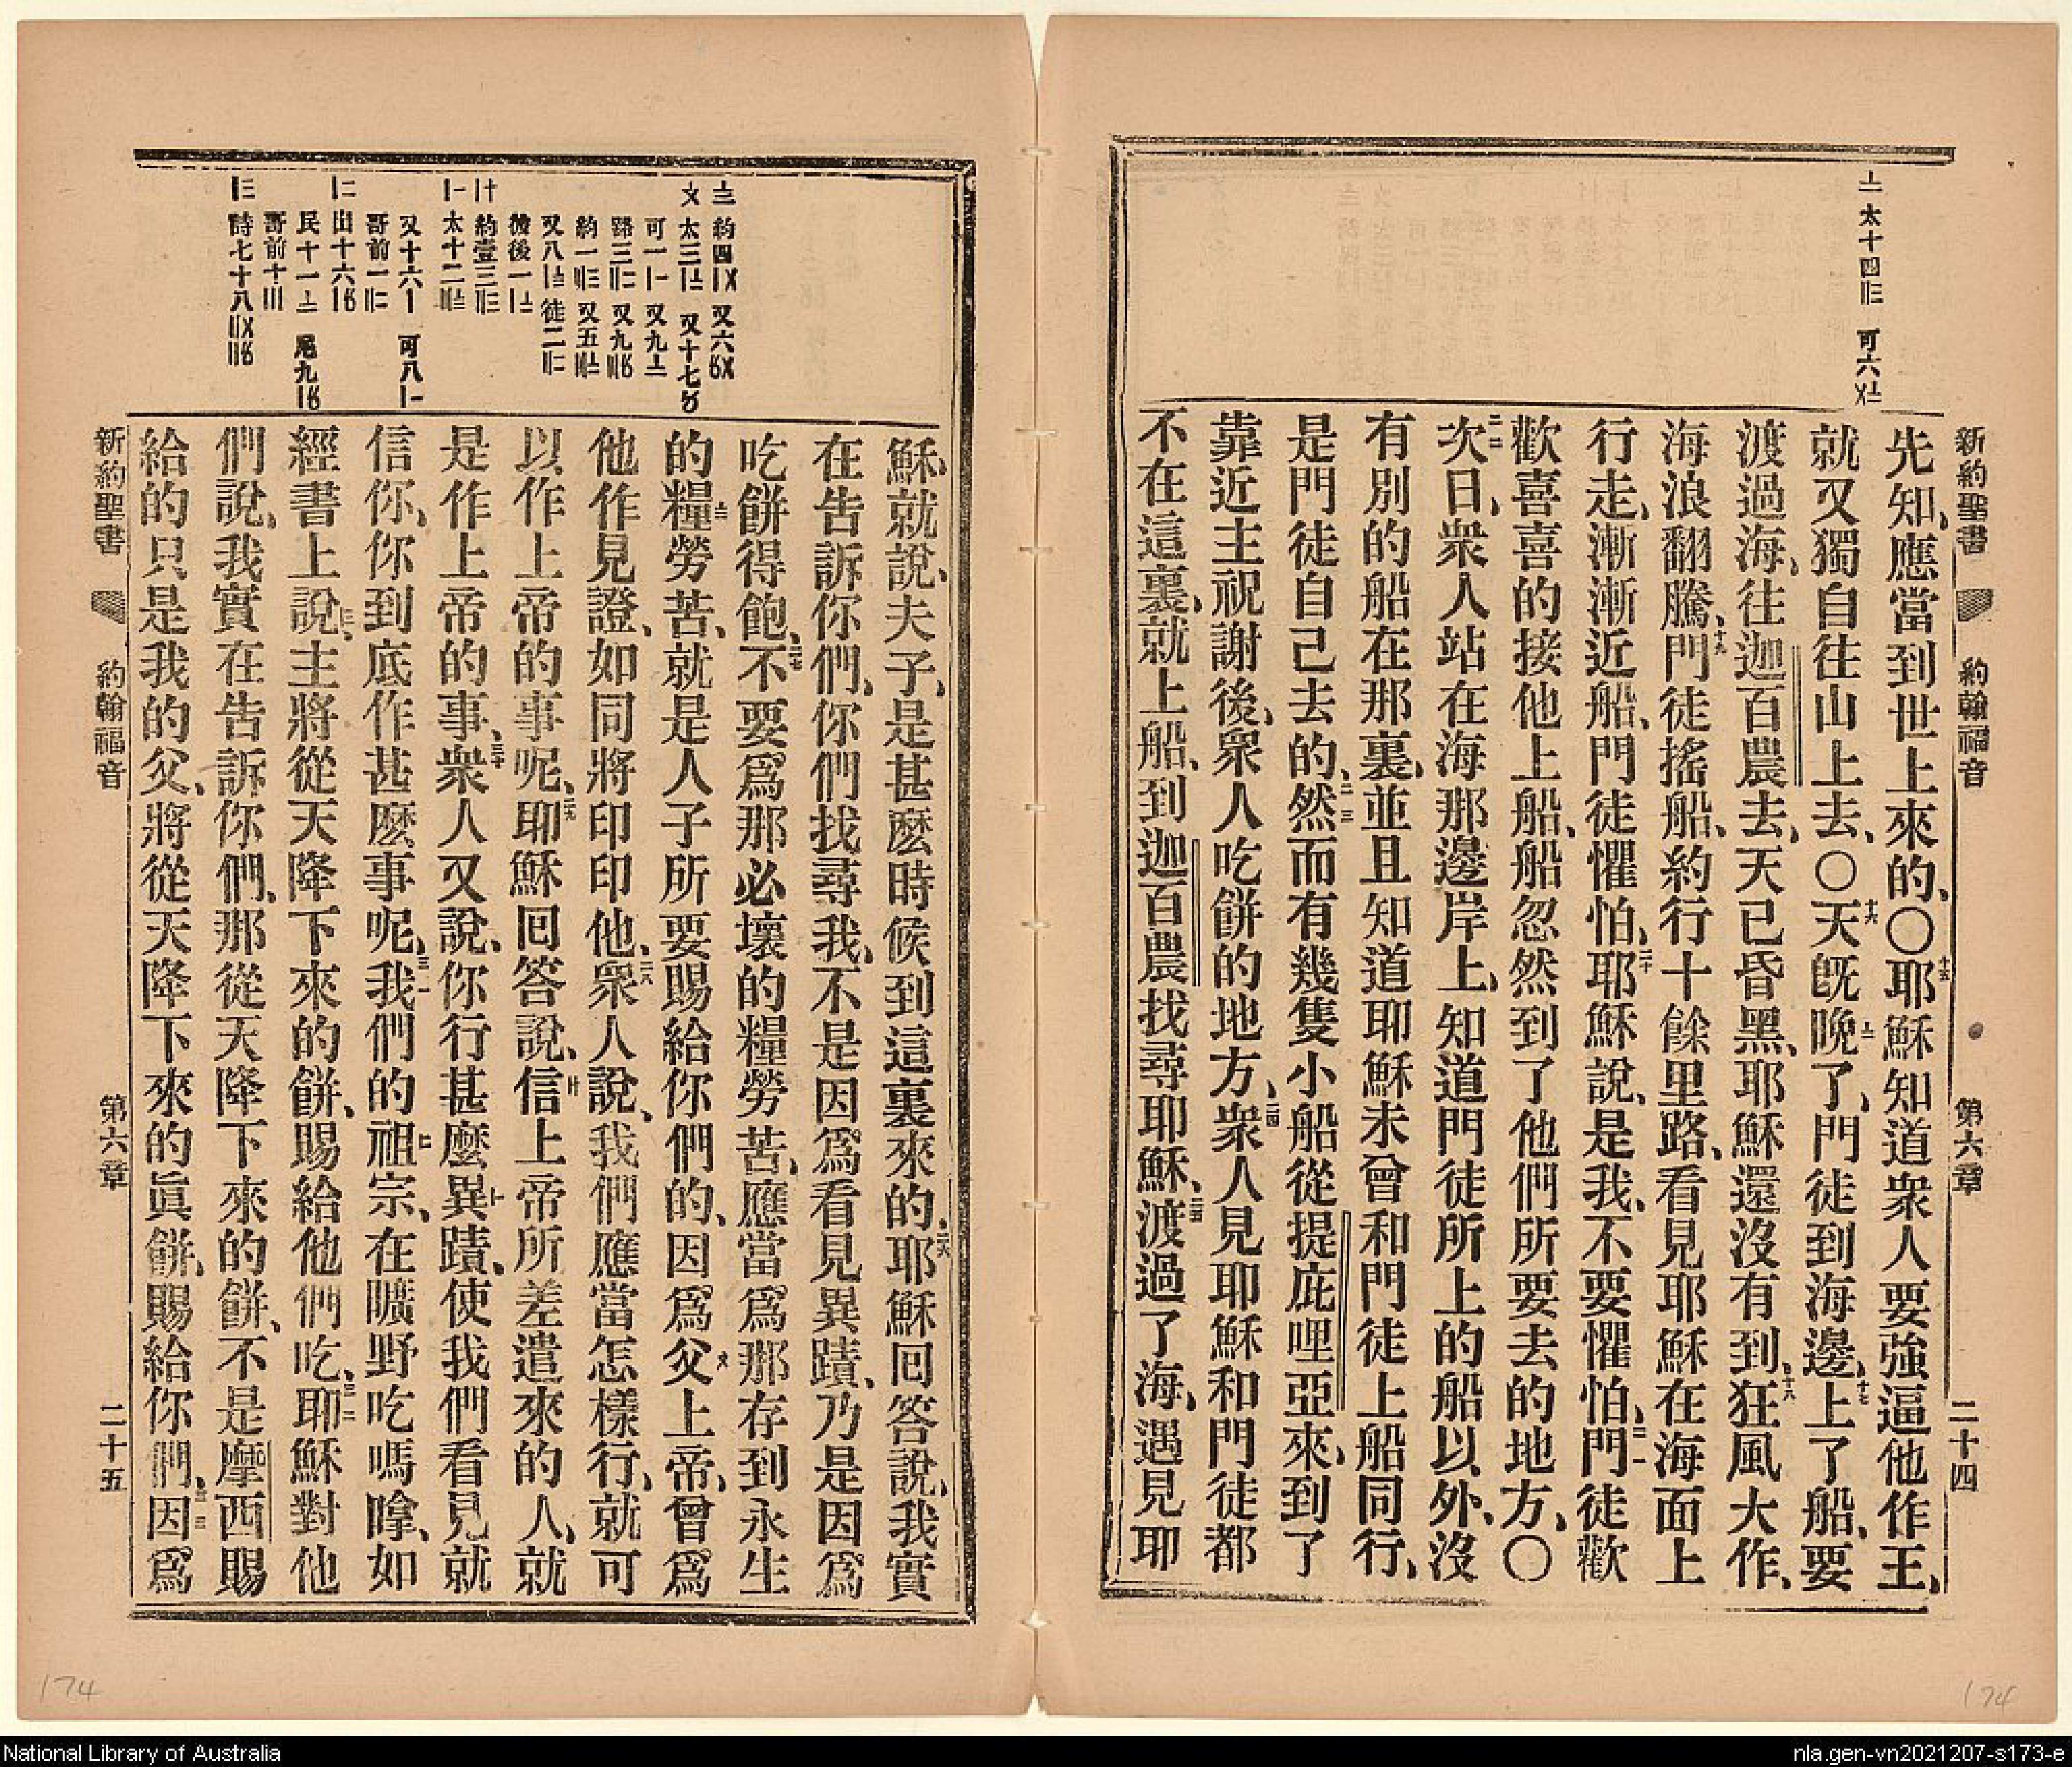 新約聖書 約翰福音 第六章 二十四
〦 太十四〢〣 可六
先知、應當到世上來的、〇十五耶穌知道衆人要強逼他作王、
就又獨自往山上去、〇十六天旣晚〦了、門徒到海邊、十七上了船、要
渡過海、往迦百農去、天已昏黑、耶穌還沒有到、十八狂風大作、
海浪翻騰、十九門徒搖船、約行十餘里路、看見耶穌在海面上
行走、漸漸近船、門徒懼怕、二十耶穌說、是我、不要懼怕、二一門徒歡
歡喜喜的接他上船、船忽然到了他們所要去的地方、〇
二二次日、衆人站在海那邊岸上、知道門徒所上的船以外、沒
有別的船在那裏、並且知道耶穌未曾和門徒上船同行、
是門徒自己去的、二三然而有幾隻小船從提庇哩亞來、到了
靠近主祝謝後、衆人吃餅的地方、二四衆人見耶穌和門徒都
不在這裏、就上船、到迦百農找尋耶穌、二五渡過了海、遇見耶
〨 約四〡〤 又六
〤 太三〡〧 又十七〥
可一〡 又九〦
路三〢〢 又九〣〥
約一〣〣 又五〣〧
又八〡〨 徒二〢〢
彼後一〡〧
〡十 約壹三〢〣
〡〡 太十二〣〨
又十六〡 可八〡〡
哥前一〢〢
〡〢 出十六〡〥
民十一〦 尼九〡〥
哥前十〣
〡〣 詩七十八〢〤〢〥
穌、就說、夫子、是甚麽時候到這裏來的、二六耶穌回答說、我實
在告訴你們、你們找尋我、不是因爲看見異蹟、乃是因爲
吃餅得飽、二七不要爲那必壞的糧勞苦、應當爲那存到永生
的糧〨勞苦、就是人子所要賜給你們的、因爲父〤上帝、曾爲
他作見證、如同將印印他、二八衆人說、我們應當怎樣行、就可
以作上帝的事呢、二九耶穌回答說、信〡十上帝所差遣來的人、就
是作上帝的事、三十衆人又說、你行甚麽異〡〡蹟、使我們看見就
信你、你到底作甚麽事呢、三一我們的祖〡〢宗、在曠野吃嗎嗱、如
經書上說、〡〣主將從天降下來的餅、賜給他們吃、三二耶穌對他
們說、我實在告訴你們、那從天降下來的餅、不是摩西賜
給的只是我的父、將從天降下來的眞餅、賜給你們、三三因爲
新約聖書 約翰福音 第六章 二十五
174
174
National Library of Australia
nla.gen-vn2021207-s173-e